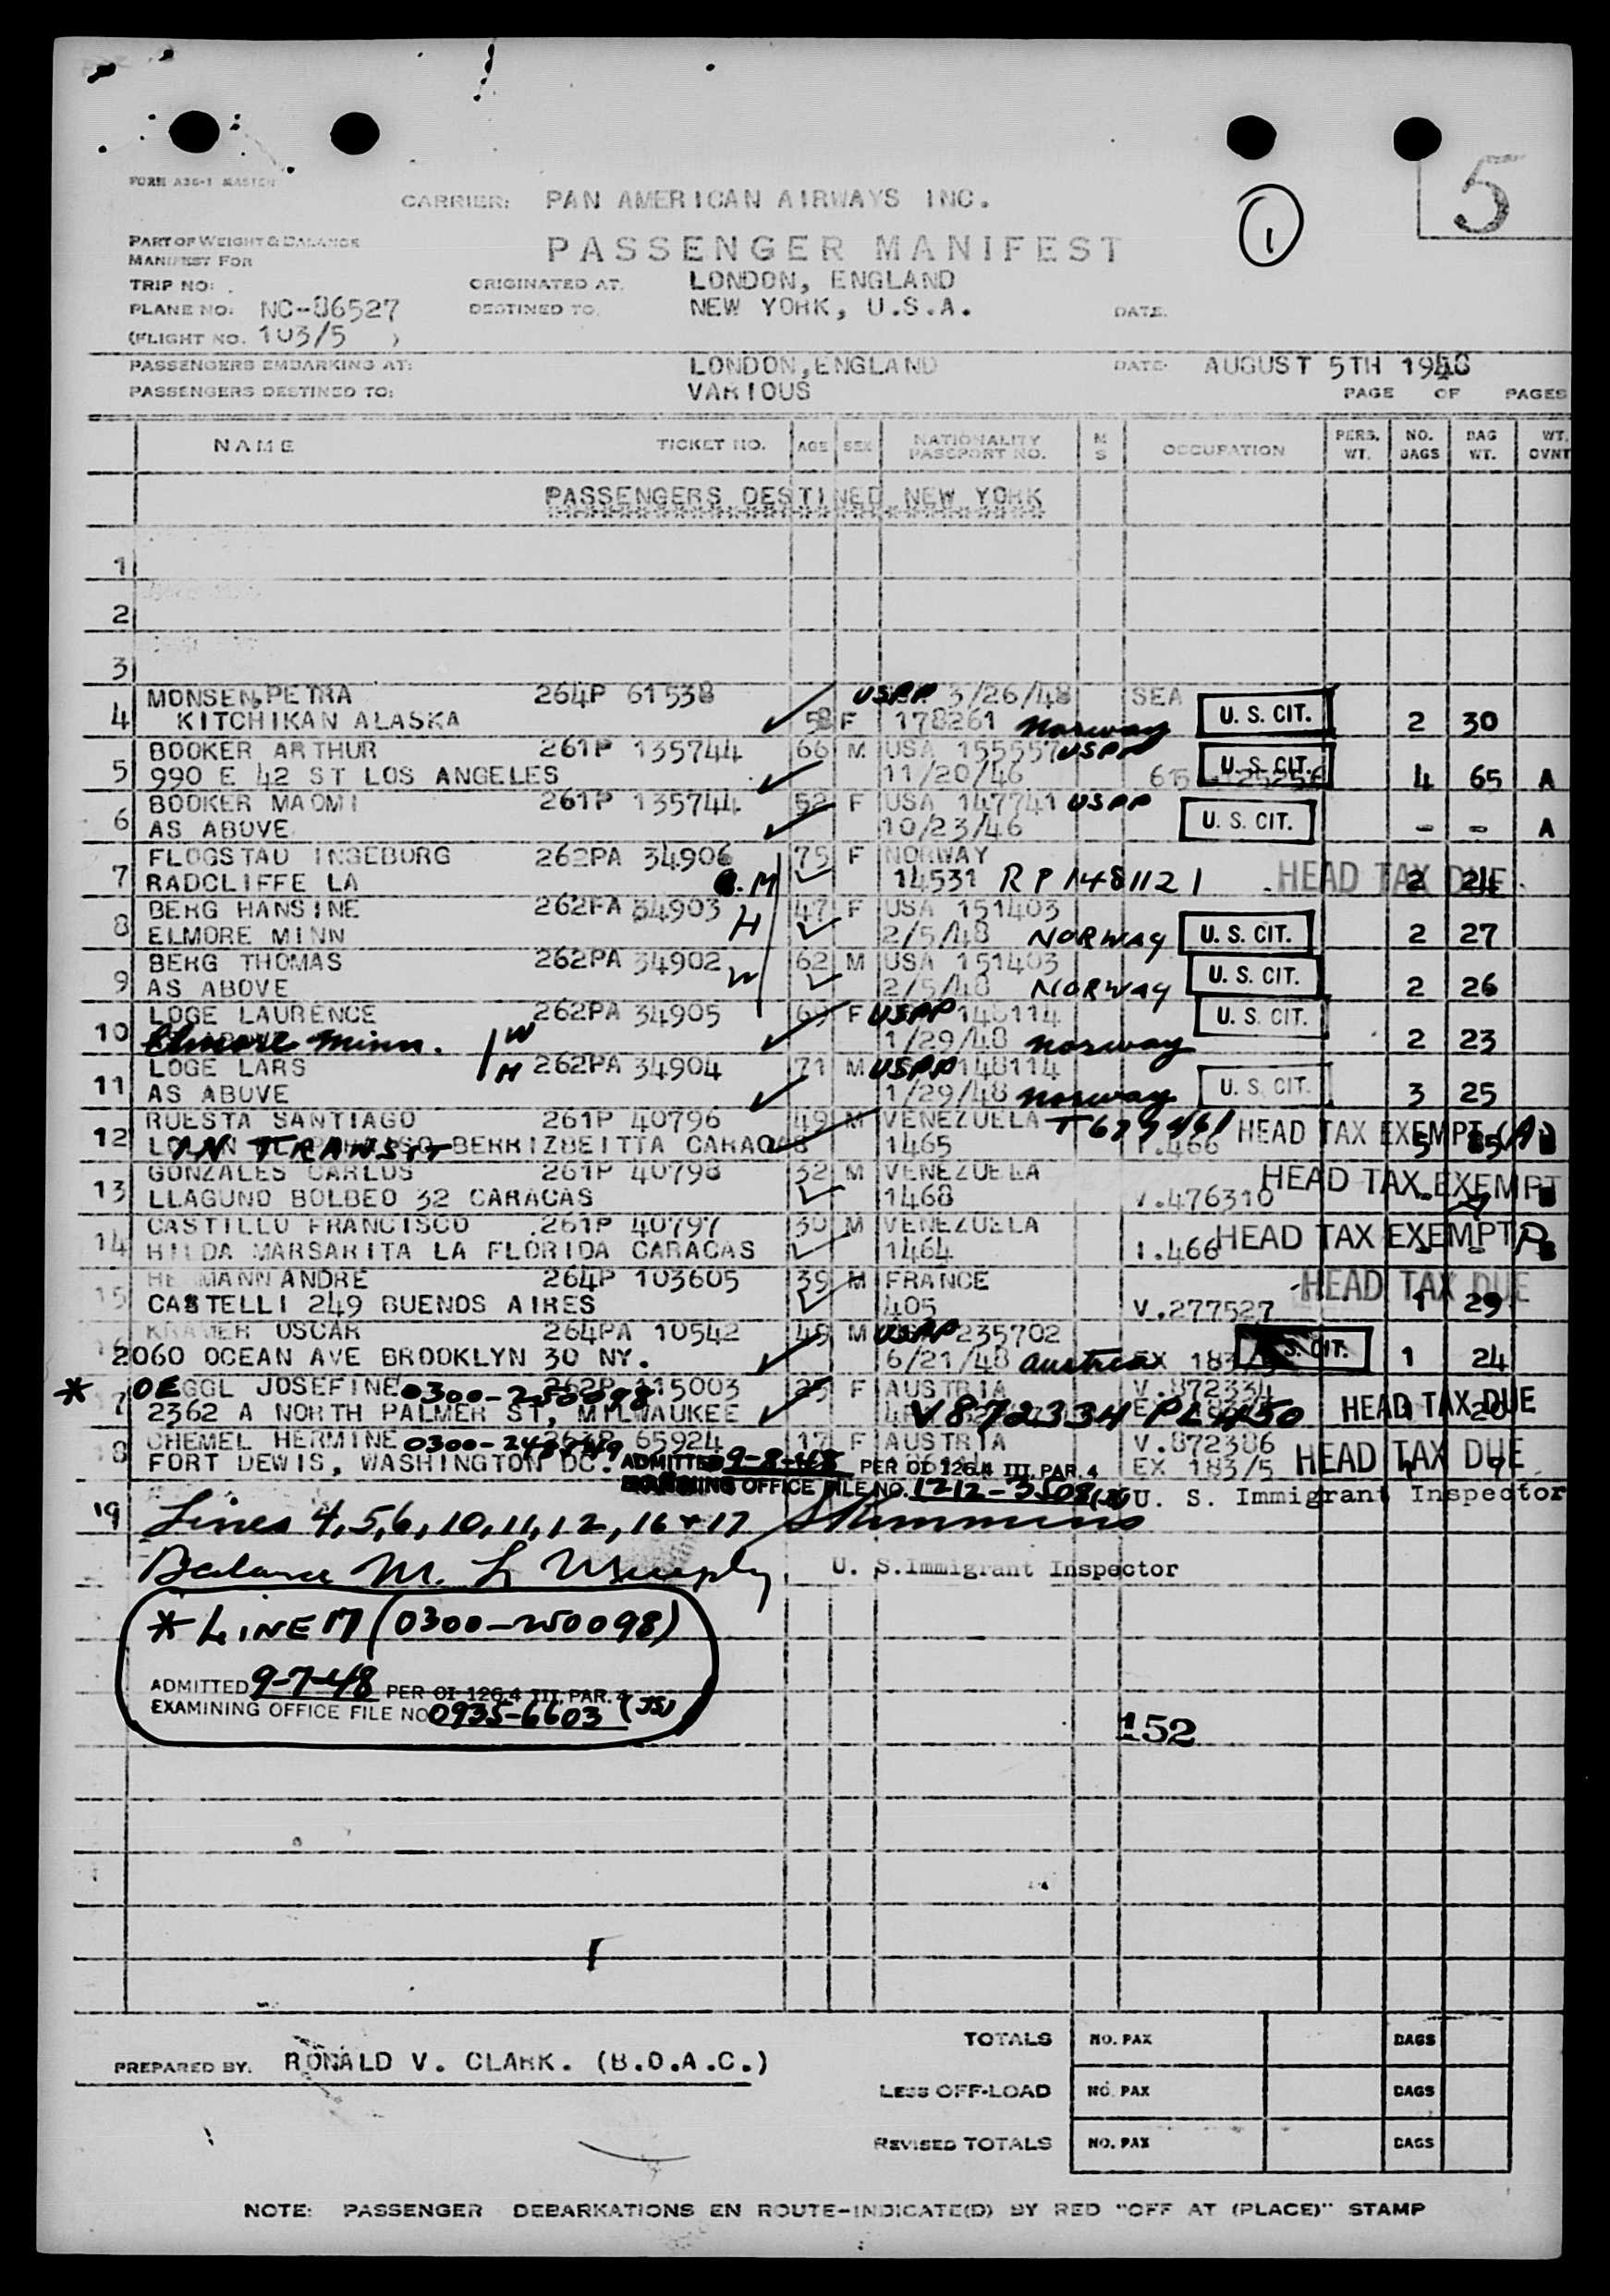 5
FORM A36-1 MASTER
CARRIER: PAN AMERICAN AIRWAYS INC.
1
PART OF WEIGHT & BALANCE
MANIFEST FOR
PASSENGER MANIFEST
TRIP NO: .
ORIGINATED AT. LONDON, ENGLAND
PLANE NO. NC-86527
DESTINED TO. NEW YORK, U.S.A.
DATE.
(FLIGHT NO. 103/5 )
PASSENGERS EMBARKING AT: LONDON, ENGLAND
DATE. AUGUST 5TH 1948
PASSENGERS DESTINED TO: VARIOUS
PAGE OF PAGES
NAME TICKET NO. AGE SEX NATIONALITY PASSPORT NO. M S OCCUPATION PERS. WT. NO. BAGS BAG WT. WT. OVNT
PASSENGERS DESTINED NEW YORK
1
2
3
MONSEN, PETRA 264P 61538 USPP 3/26/48 SEA
4 KITCHIKAN ALASKA 58 F 178261 Norway U. S. CIT. 2 30
BOOKER ARTHUR 261P 135744 66 M USA 155557 USPP
5 990 E 42 ST LOS ANGELES 11/20/46 U. S. CIT. 4 65 A
BOOKER MAOMI 261P 135744 52 F USA 147741 USPP
6 AS ABOVE 10/23/46 U. S. CIT. - - A
FLOGSTAD INGEBORG 262PA 34906 75 F NORWAY
7 RADCLIFFE LA 14531 RP 1481121 HEAD TAX DUE 2 24
BERG HANSINE 262PA 34903 H 47 F USA 151403
8 ELMORE MINN 2/5/48 NORWAY U. S. CIT. 2 27
BERG THOMAS 262PA 34902 W 62 M USA 151403
9 AS ABOVE 2/5/48 NORWAY U. S. CIT. 2 26
LOGE LAURENCE 262PA 34905 69 F USPP 148114
10 Elmore Minn. W 1/29/48 Norway U. S. CIT. 2 23
LOGE LARS H 262PA 34904 71 M USPP 148114
11 AS ABOVE 1/29/48 Norway U. S. CIT. 3 25
RUESTA SANTIAGO 261P 40796 49 M VENEZUELA T 679461
12 IN TRANSIT BERRIZBEITTA CARACAS 1465 1.466 HEAD TAX EXEMPT 5 85 (A)
GONZALES CARLOS 261P 40798 32 M VENEZUELA
13 LLAGUNO BOLBEO 32 CARACAS 1468 V.476310 HEAD TAX EXEMPT
CASTILLO FRANCISCO 261P 40797 30 M VENEZUELA
14 HILDA MARSARITA LA FLORIDA CARACAS 1464 1.466 HEAD TAX EXEMPT
HERMANN ANDRE 264P 103605 39 M FRANCE
15 CASTELLI 249 BUENOS AIRES 405 V.277527 HEAD TAX DUE 1 29
KRAMER OSCAR 264PA 10542 49 M USPP 235702
16 2060 OCEAN AVE BROOKLYN 30 NY. 6/21/48 Austria EX 183/5 U. S. CIT. 1 24
* OEGGL JOSEFINE 0300-250098 262P 115003 25 F AUSTRIA V.872334
17 2362 A NORTH PALMER ST, MILWAUKEE V872334 PL 450 HEAD TAX DUE
CHEMEL HERMINE 65924 17 F AUSTRIA V.872386
18 FORT DEWIS, WASHINGTON DC. ADMITTED 9-8-48 PER OI 126.4 III, PAR. 4 EX 183/5 HEAD TAX DUE
EXAMINING OFFICE FILE NO. 1212-3508 U. S. Immigrant Inspector
19 Lines 4,5,6,10,11,12,16 + 17
Balance M. L. Murphy U. S. Immigrant Inspector
* LINE 17 (0300-250098)
ADMITTED 9-7-48 PER OI 126.4 III, PAR. 4
EXAMINING OFFICE FILE NO 0935-6603 (JS)
152
TOTALS NO. PAX BAGS
PREPARED BY. RONALD V. CLARK. (B.O.A.C.)
LESS OFF-LOAD NO. PAX BAGS
REVISED TOTALS NO. PAX BAGS
NOTE: PASSENGER DEBARKATIONS EN ROUTE-INDICATE(D) BY RED "OFF AT (PLACE)" STAMP